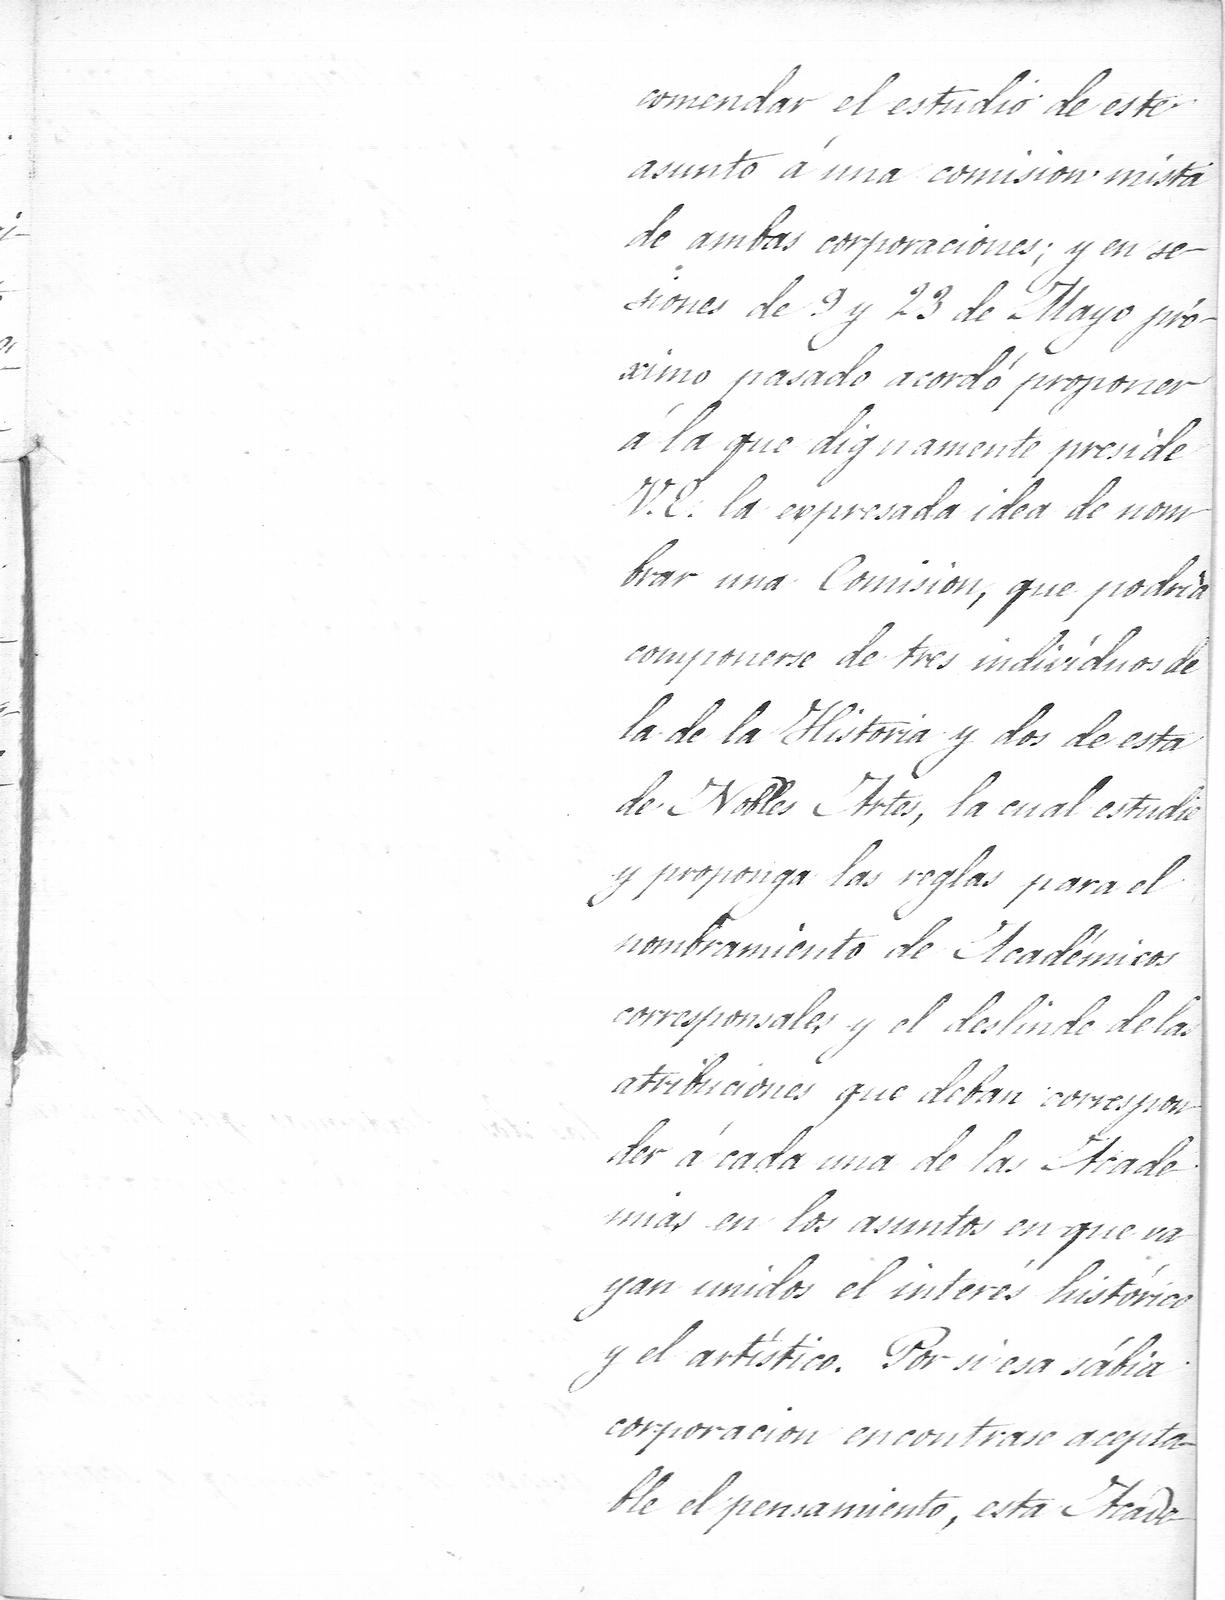 comendar el estudio de este
asunto á una comision mista
de ambas corporaciones; y en se-
siones de 9 y 23 de Mayo pró-
ximo pasado acordó proponer
á la que dignamente preside
V.E. la expresada idea de nom-
brar una Comision, que podria
componerse de tres indivíduos de
la de la Historia y dos de esta
de Nobles Artes, la cual estudie
y proponga las reglas para el
nombramiento de Académicos
corresponsales y el deslinde de las
atribuciones que deban correspon-
der á cada una de las Acade-
mias en los asuntos en que va-
yan unidos el interés histórico
y el artístico. Por si esa sábia
corporacion encontrase acepta-
ble el pensamiento, esta Acade-